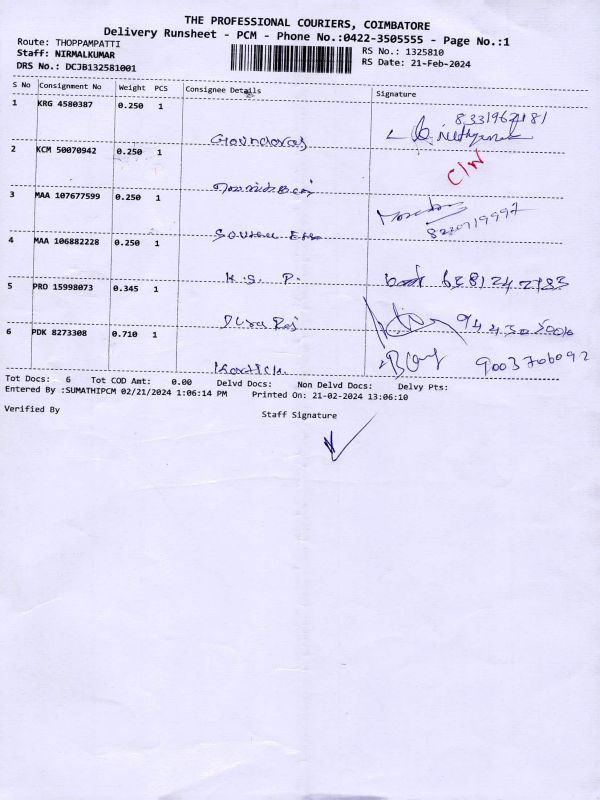 THE PROFESSIONAL COURIERS, COIMBATORE
Delivery Runsheet - PCM - Phone No.:0422-3505555 - Page No.:1
Route: THOPPAMPATTI
RS No.: 1325810
Staff: NIRMALKUMAR
RS Date: 21-Feb-2024
DRS No.: DCJB132581001
S No Consignment No Weight PCS Consignee Details Signature
1 KRG 4580387 0.250 1
2 KCM 50070942 0.250 1
C/N
3 MAA 107677599 0.250 1
4 MAA 106882228 0.250 1
K.S. P. 6381242783
5 PRO 15998073 0.345 1
Durai Raj
6 PDK 8273308 0.710 1
9003706092
Tot Docs: 6 Tot COD Amt: 0.00 Delvd Docs: Non Delvd Docs: Delvy Pts:
Entered By :SUMATHIPCM 02/21/2024 1:06:14 PM Printed On: 21-02-2024 13:06:10
Verified By
Staff Signature